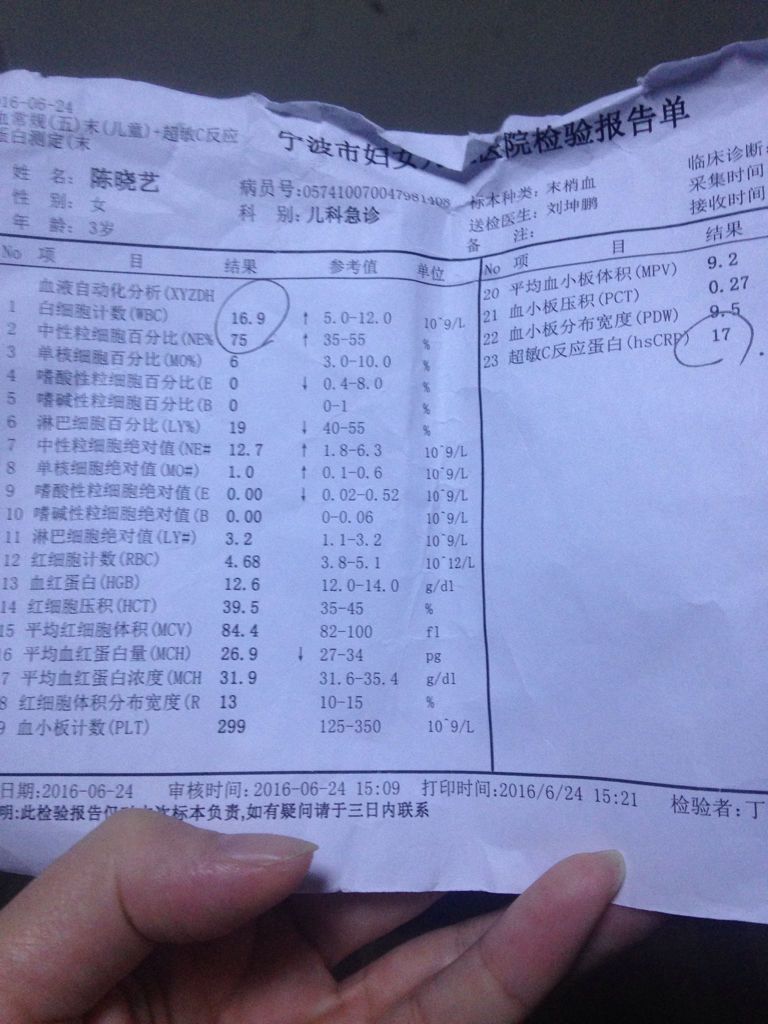 16-06-24
血常规(五)末(儿童)+超敏C反应
蛋白测定(末
宁波市妇女 医院检验报告单
姓 名: 陈晓艺
性 别: 女
年 龄: 3岁
病员号:057410070047981408
科 别:儿科急诊
标本种类: 末梢血
送检医生: 刘坤鹏
备 注:
临床诊断:
采集时间
接收时间
No 项 目 结果 参考值 单位
血液自动化分析(XYZDH
1 白细胞计数(WBC) 16.9 ↑ 5.0-12.0 10^9/L
2 中性粒细胞百分比(NE% 75 ↑ 35-55 %
3 单核细胞百分比(MO%) 6 3.0-10.0 %
4 嗜酸性粒细胞百分比(E 0 ↓ 0.4-8.0 %
5 嗜碱性粒细胞百分比(B 0 0-1 %
6 淋巴细胞百分比(LY%) 19 ↓ 40-55 %
7 中性粒细胞绝对值(NE# 12.7 ↑ 1.8-6.3 10^9/L
8 单核细胞绝对值(MO#) 1.0 ↑ 0.1-0.6 10^9/L
9 嗜酸性粒细胞绝对值(E 0.00 ↓ 0.02-0.52 10^9/L
10 嗜碱性粒细胞绝对值(B 0.00 0-0.06 10^9/L
11 淋巴细胞绝对值(LY#) 3.2 1.1-3.2 10^9/L
12 红细胞计数(RBC) 4.68 3.8-5.1 10^12/L
13 血红蛋白(HGB) 12.6 12.0-14.0 g/dl
14 红细胞压积(HCT) 39.5 35-45 %
15 平均红细胞体积(MCV) 84.4 82-100 fl
6 平均血红蛋白量(MCH) 26.9 ↓ 27-34 pg
7 平均血红蛋白浓度(MCH 31.9 31.6-35.4 g/dl
8 红细胞体积分布宽度(R 13 10-15 %
9 血小板计数(PLT) 299 125-350 10^9/L
No 项 目 结果
20 平均血小板体积(MPV) 9.2
21 血小板压积(PCT) 0.27
22 血小板分布宽度(PDW) 9.5
23 超敏C反应蛋白(hsCRP) 17
日期:2016-06-24 审核时间:2016-06-24 15:09 打印时间:2016/6/24 15:21 检验者:丁
明:此检验报告仅对 次标本负责,如有疑问请于三日内联系